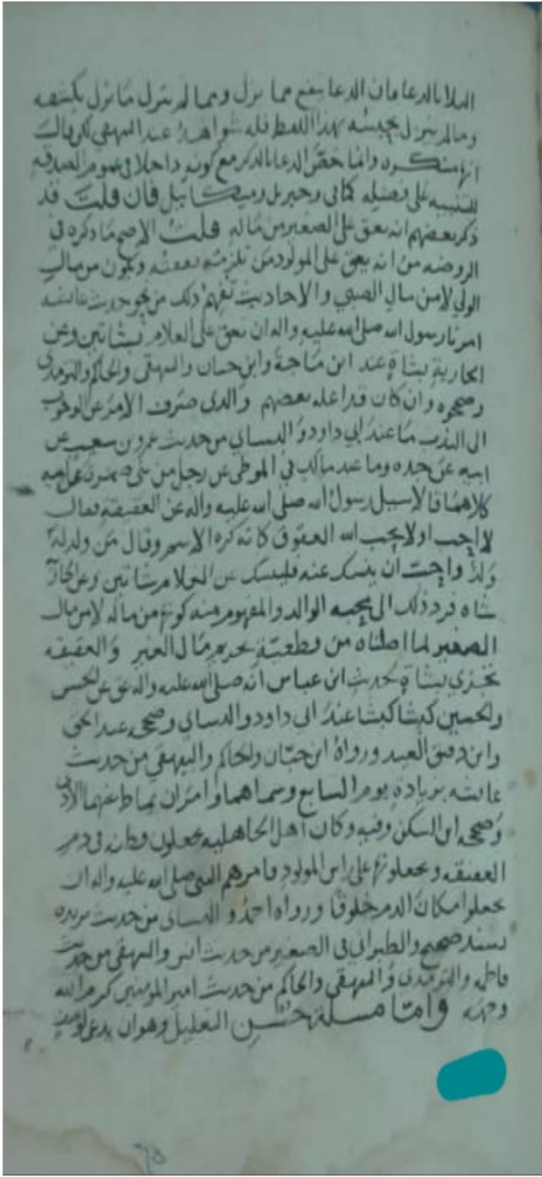 البلا بالدعا فان الدعا ينفع مما نزل ومما لم ينزل ما نزل يكشفه
وما لم ينزل يحبسه بهذا اللفظ فله شواهد عند البيهقي لكن قال
انها منكره وانما خص الدعا بالذكر مع كونه داخلا في عموم الصدقه
للتنبيه على فضيله كما في وجبريل وميكائيل فان قلت قد
ذكر بعضهم انه يعق على الصغير من ماله قلت الاصح ما ذكره في
الروضه من انه يعق على المولود من تلزمه نفقته ويكون من مال
الولي لا من مال الصبي والاحاديث تفهم ذلك من نحو حديث عائشه
امرنا رسول الله صلى الله عليه واله ان نعق على الغلام بشاتين وعن
الجارية بشاة عند ابن ماجة وابن حبان والبيهقي والحاكم والترمذي
وصححوه وان كان قد اعله بعضهم والذي صرف الامر عن الوجوب
الى الندب ما عند ابي داود والنسائي من حديث عمرو بن شعيب عن
ابيه عن جده وما عند مالك في الموطى عن رجل من بني ضمره عن ابيه
كلاهما قالا سيل رسول الله صلى الله عليه واله عن العقيقة فقال
لا احب او لا يحب الله العقوق كانه كره الاسم وقال من ولد له
ولد واحب ان ينسك عنه فلينسك عن الغلام شاتين وعن الجارية
شاه فرد ذلك الى محبه الوالد والمفهوم منه كونها من ماله لا من مال
الصغير لما اصلناه من قطعيّة تحريم مال الغير والعقيقه
تجزي بشاة لحديث ابن عباس انه صلى الله عليه واله عق عن الحسن
والحسين كبشا كبشا عند ابي داود والنسائي وصححه عبد الحق
وابن دقيق العيد ورواه ابن حبّان والحاكم والبيهقي من حديث
عائشه بزيادة يوم السابع وسماهما وامر ان يماط عنهما الاذى
وصححه ابن السكن وفيه وكان اهل الجاهليه يجعلون قطنه في دم
العقيقه ويجعلونها على راس المولود فامرهم النبي صلى الله عليه واله ان
يجعلوا مكان الدم خلوقا ورواه احمد والنسائي من حديث بريده
بسند صحيح والطبراني في الصغير من حديث انس والبيهقي من حديث
فاطمه والترمذي والبيهقي والحاكم من حديث امير المومنين كرم الله
وجهه واما مسئلة حسن التعليل وهو ان يدعى لوصف